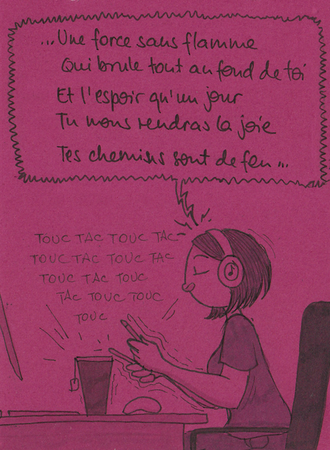 ...Une force sans flamme
Qui brule tout au fond de toi
Et l'espoir qu'un jour
Tu nous rendras la joie
Tes chemins sont de feu...
TOUC TAC TOUC TAC
TOUC TAC TOUC TAC
TOUC TAC TOUC
TAC TOUC TOUC
TOUC